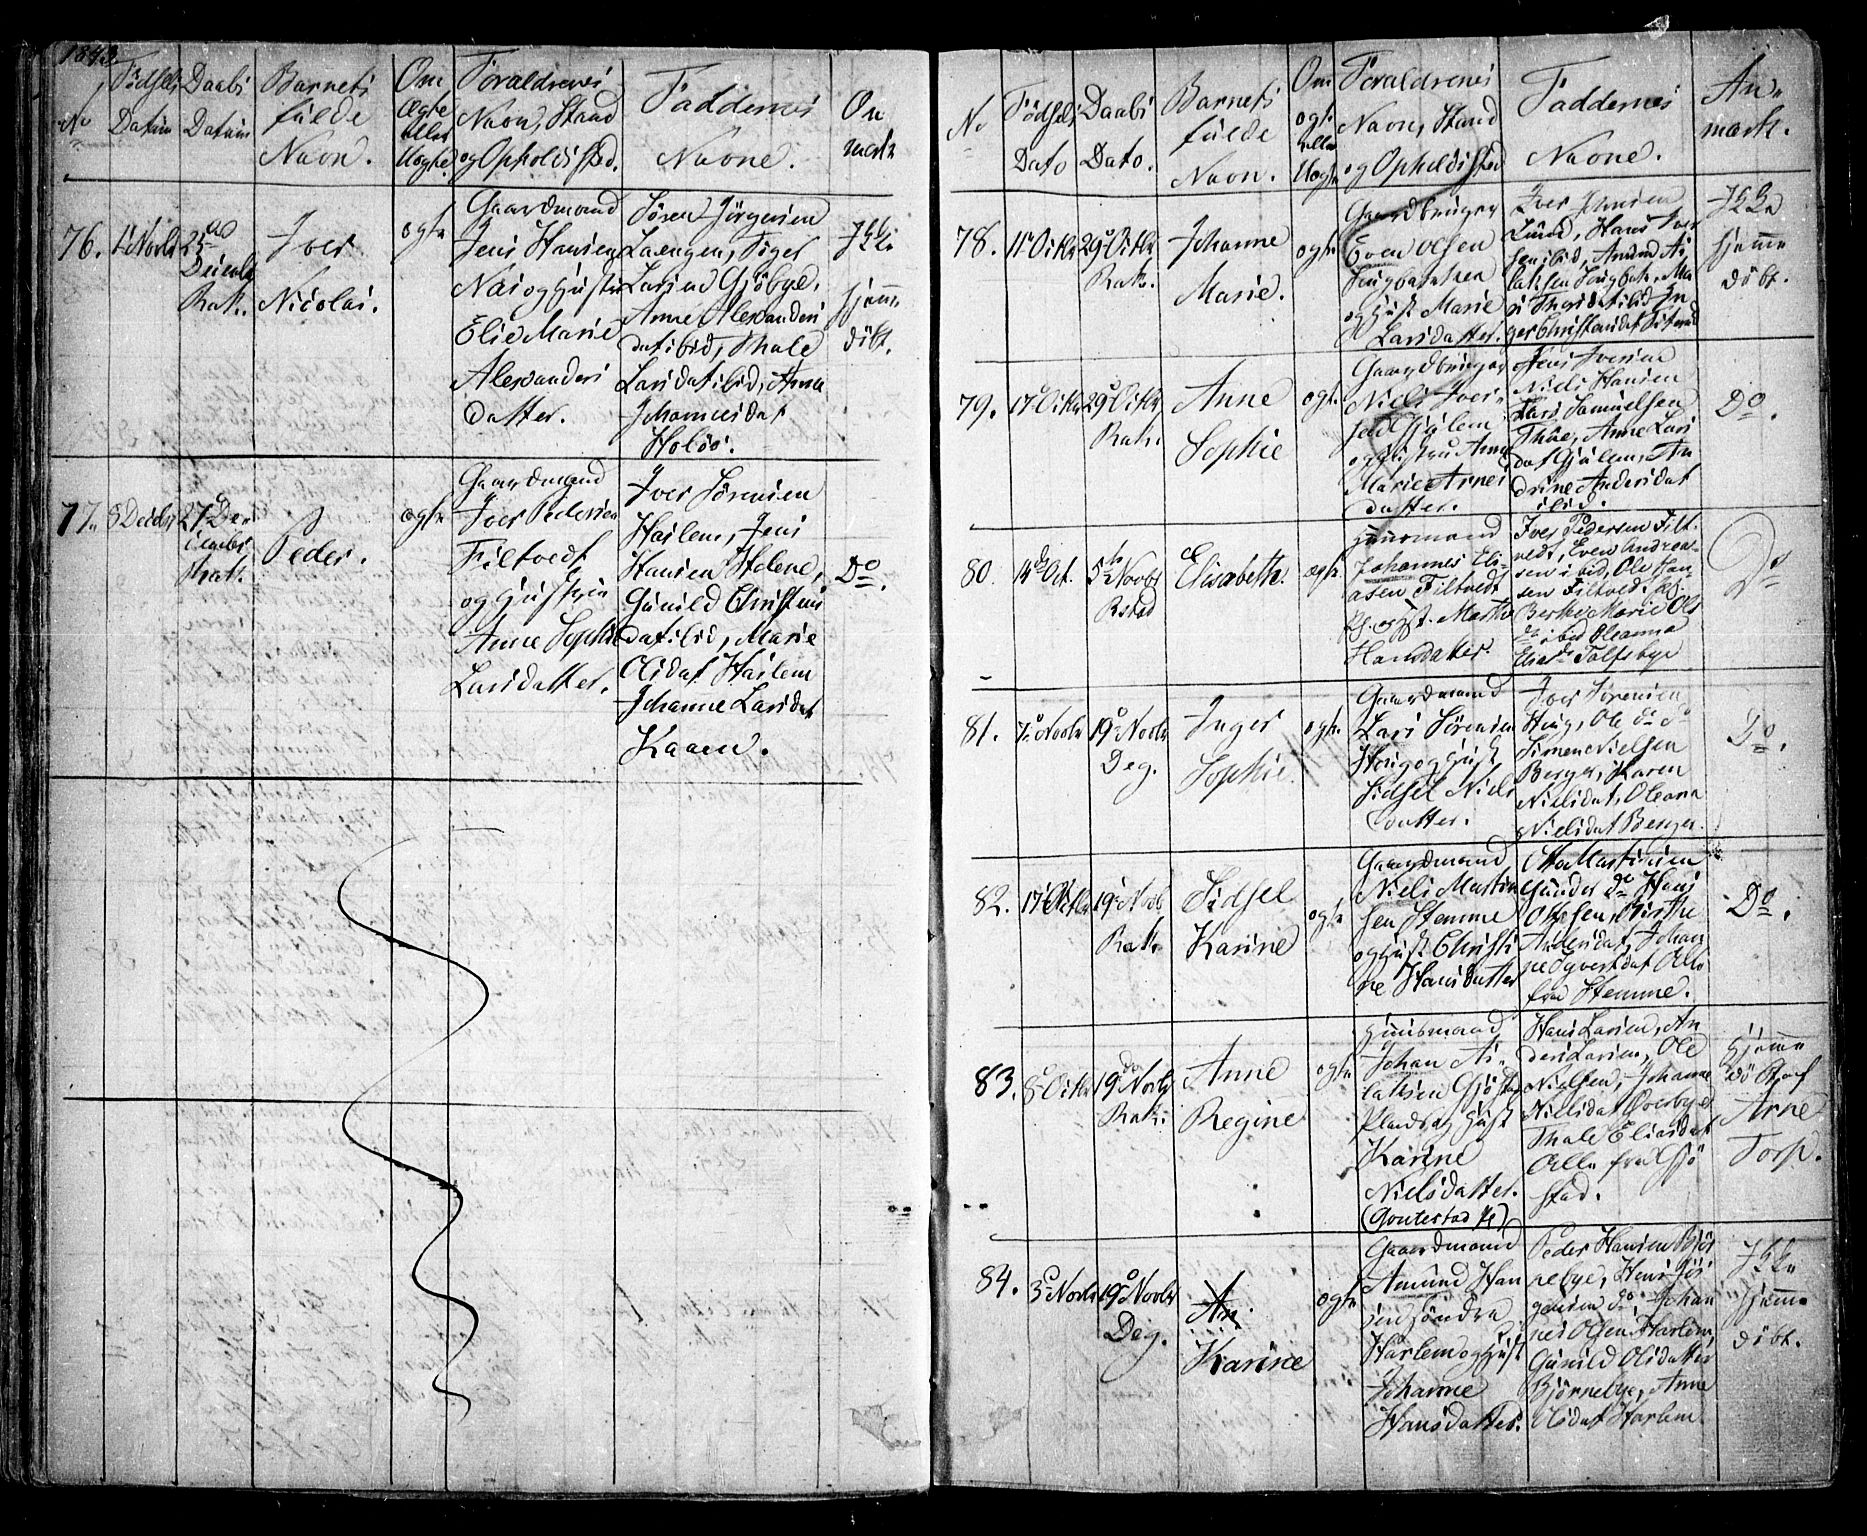 1843.
No
Fødsels Datum
Daabs Datum
Barnets fulde Navn.
Om ægte eller Uægte.
Forældrenes Navn, Stand og Opholdssted.
Faddernes Navne.
An mærk
76.
1 Novbr
25de Decembr Rak.
Iver Nicolai.
ægte
Gaardmand
Jens Hansen
Næs og Hustru
Elie Marie
Alexanders
datter.
Søren Jørgensen
Laengen, Siger
Larsen Gjøbye,
Anne Alexanders
dat ibid, Thale
Larsdat ibid, Anna
Johannesdat
Holøs.
Ikke
hjemme
døbt.
77.
8 Decbr
27 De
cember
Rak.
Peder.
ægte
Gaardmand
Iver Pedersen
Filtvedt
og Hustru
Anne Sophie
Larsdatter.
Iver Sørensen
Harlem, Jens
Hansen Holene,
Gunild Christens
dat ibid, Marie
Olsdat Harlem
Johanne Larsdat
Kaaen.
Do.
No
Fødsels Dato
Daabs Dato.
Barnets fulde Navn.
Om ægte eller Uægte
Forældrenes Navn, Stand og Opholdssted
Faddernes Navne.
An mærk.
78.
11 Octbr
29 Octbr
Rak.
Johanne
Marie.
ægte
Gaardbruger
Even Olsen
Haugbakken
og Hust Marie
Larsdatter.
Iver Jensen
Lund, Hans Iver
sen ibid, Amund As
laksen Haugbak, Ma
ri Thorsdat ibid In
ger Christensdat
Ikke
hjemme
døbt.
79.
17 Octbr
29 Octbr
Rak.
Anne
Sophie
ægte.
Gaardbruger
Niels Iver
sen Hjælem
og Hustru Anne
Marie Arnes
datter.
Jens Iversen
Niels Hansen
Lars Samuelsen
Thøe, Anne Lars
dat Gjølem, An
drine Andersdat
ibid.
Do.
80.
14de Oct.
5te Novbr
Rstad
Elisabeth.
ægte.
Huusmand
Johannes Eli-
asen Filtvedt
og Hst. Marthe
Hansdatter.
Iver Pedersen Filt-
vedt, Even Andrea-
sen ibid, Ole Han-
sen Filtvedt
Berthe Marie Ols
dr ibid Oleanna
Eliasdr Tolfsbye
Do
81.
7 Novbr
19 Novbr
Deg.
Inger
Sophie.
ægte.
Gaardmand
Lars Sørensen
Haug og Hust
Sidsel Niels
datter.
Iver Sørensen
Haug, Ole do do
Simen Nielsen
Berger, Karen
Nielsdat, Oleana
Nielsdat Berger.
Do.
82.
17 Octbr
19 Novb
Rak.
Sidsel
Karine
ægte
Gaardmand
Niels Martin
sen Stemme
og Hust Christi
ne Hansdatter
Ole Martinsen
Gunder do Hans
Ottesen, Birthe
Andersdat, Johan
ne Syversdat Alle
fra Stemme.
Do.
83.
8 Octbr
19de Novbr
Rak.
Anne
Regine
ægte
Huusmand
Johan As-
laksen Gjøstad
Plads og Hust
Karine
Nielsdatter.
Hans Larsen, An
ders Larsen, Ole
Nielsen, Johanne
Nielsdat Overbye
Thale Eliasdat
Alle fra Gjø
stad.
Hjemme
dø. B. af
Arne
Torp.
84.
3 Novbr
19 Novbr
Deg.
Karine
ægte
Gaardmand
Amund Han
sen Søndra
Harlem og Hust
Johanne
Hansdatter.
Peder Hansen Bjør
nebye, Hans Jør
gensen do, Johan
nes Olsen Harlem,
Gunild Olsdatter
Bjørnebye, Anne
Olsdat Harlem.
Ikke
hjemme
døbt.